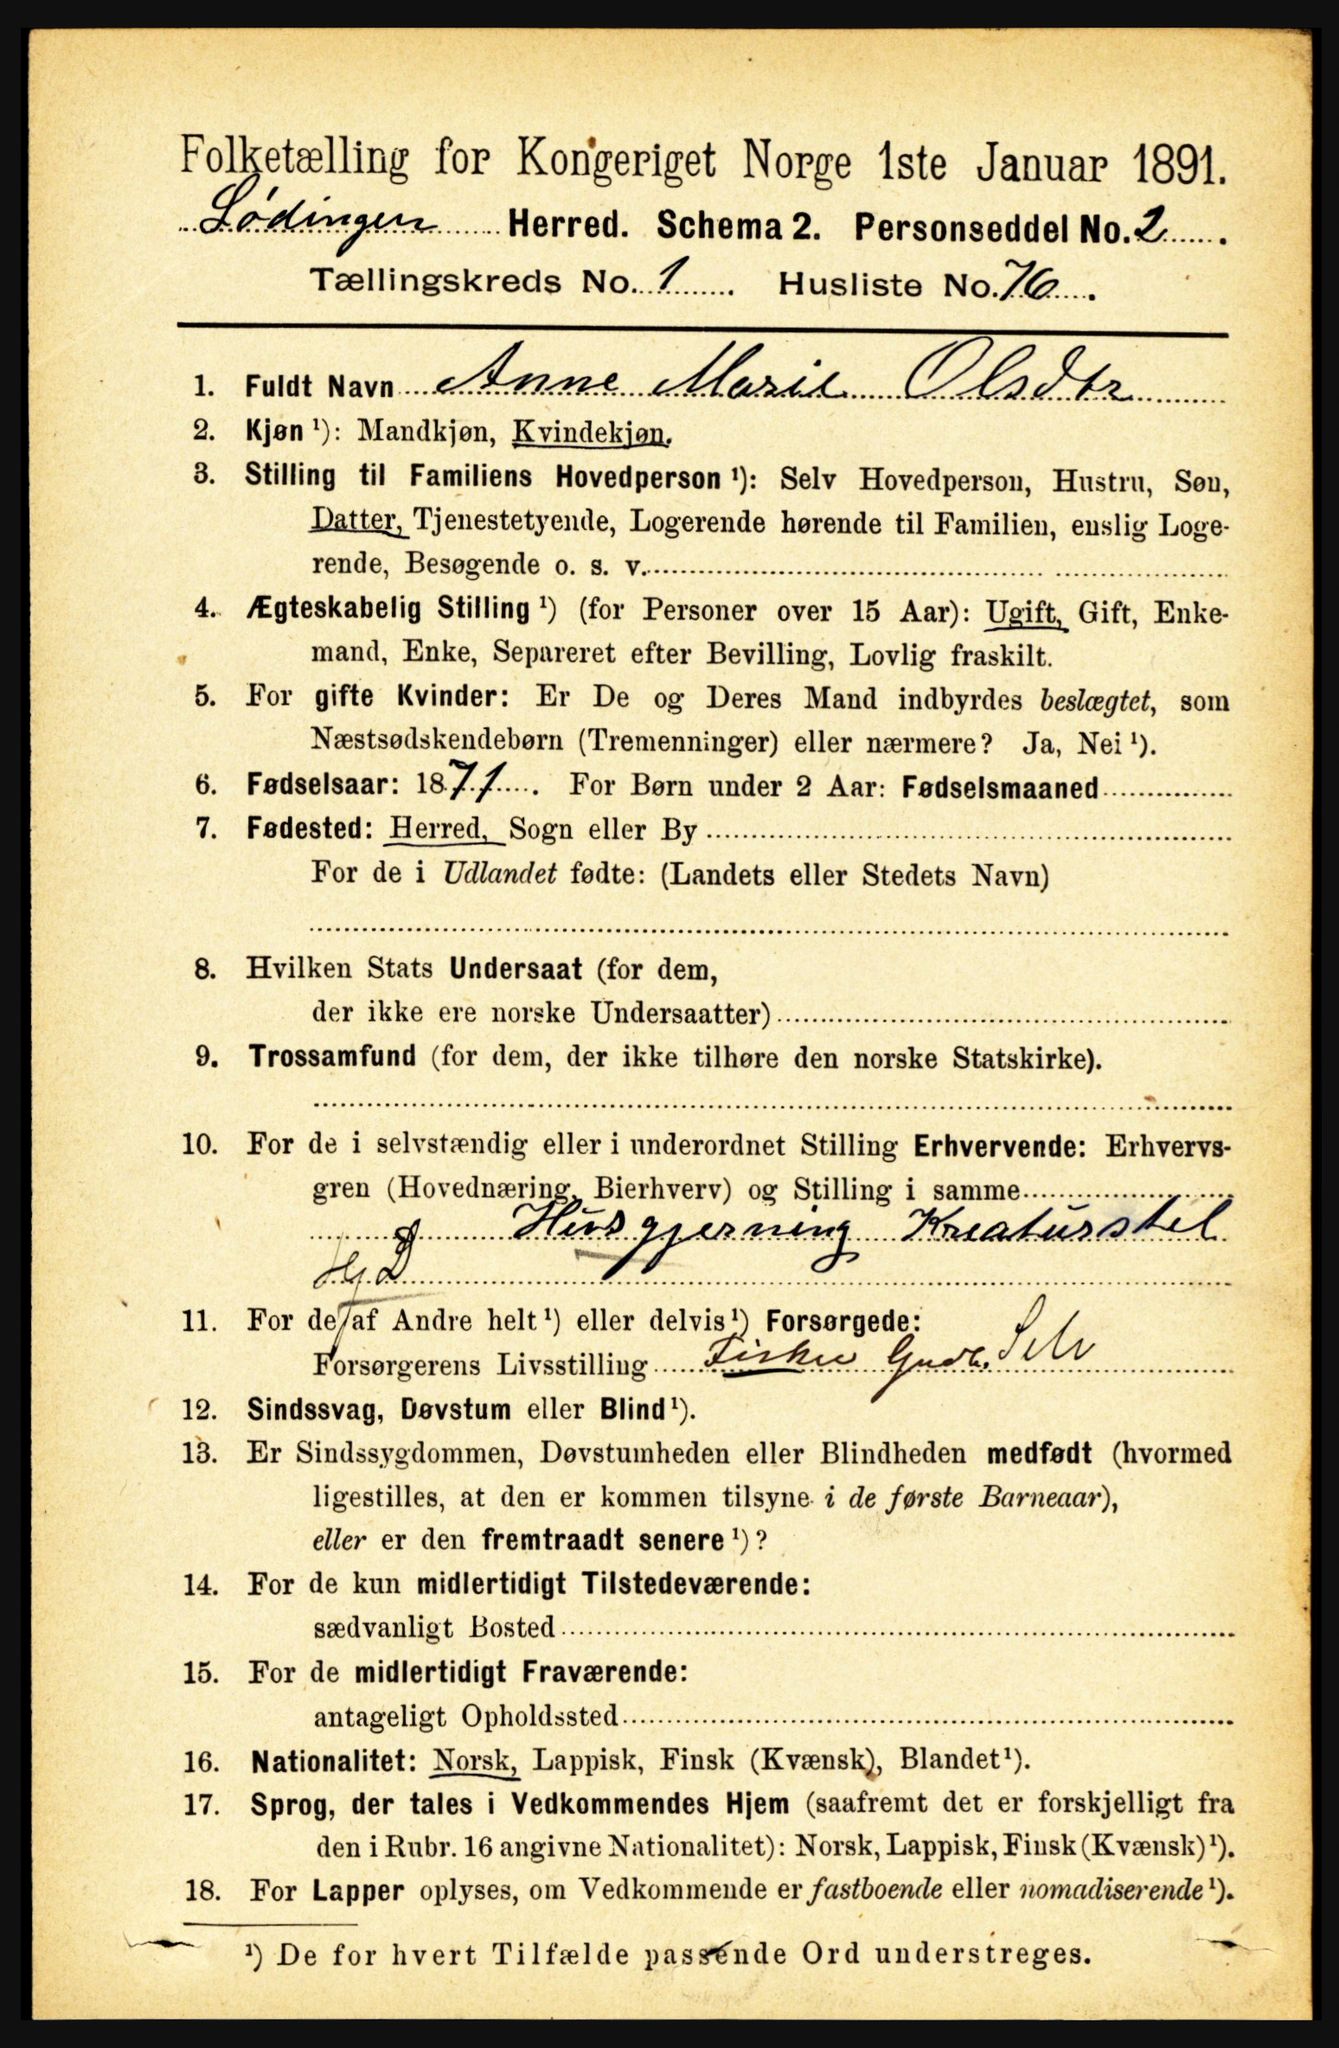 Folketælling for Kongeriget Norge 1ste Januar 1891.
Lødingen Herred. Schema 2. Personseddel No. 2.
Tællingskreds No. 1. Husliste No. 76.
1. Fuldt Navn Anne Marie Olsdtr
2. Kjøn ¹): Mandkjøn, Kvindekjøn.
3. Stilling til Familiens Hovedperson ¹): Selv Hovedperson, Hustru, Søn,
Datter, Tjenestetyende, Logerende hørende til Familien, enslig Loge-
rende, Besøgende o. s. v.
4. Ægteskabelig Stilling ¹) (for Personer over 15 Aar): Ugift, Gift, Enke-
mand, Enke, Separeret efter Bevilling, Lovlig fraskilt.
5. For gifte Kvinder: Er De og Deres Mand indbyrdes beslægtet, som
Næstsødskendebørn (Tremenninger) eller nærmere? Ja, Nei ¹).
6. Fødselsaar: 1871. For Børn under 2 Aar: Fødselsmaaned
7. Fødested: Herred, Sogn eller By
For de i Udlandet fødte: (Landets eller Stedets Navn)
8. Hvilken Stats Undersaat (for dem,
der ikke ere norske Undersaatter)
9. Trossamfund (for dem, der ikke tilhøre den norske Statskirke).
10. For de i selvstændig eller i underordnet Stilling Erhvervende: Erhvervs-
gren (Hovednæring, Bierhverv) og Stilling i samme
Husgjerning Kreaturstel
11. For de af Andre helt ¹) eller delvis ¹) Forsørgede:
Forsørgerens Livsstilling Fisker Gndb. Selv
12. Sindssvag, Døvstum eller Blind ¹).
13. Er Sindssygdommen, Døvstumheden eller Blindheden medfødt (hvormed
ligestilles, at den er kommen tilsyne i de første Barneaar),
eller er den fremtraadt senere ¹)?
14. For de kun midlertidigt Tilstedeværende:
sædvanligt Bosted
15. For de midlertidigt Fraværende:
antageligt Opholdssted
16. Nationalitet: Norsk, Lappisk, Finsk (Kvænsk), Blandet ¹).
17. Sprog, der tales i Vedkommendes Hjem (saafremt det er forskjelligt fra
den i Rubr. 16 angivne Nationalitet): Norsk, Lappisk, Finsk (Kvænsk) ¹).
18. For Lapper oplyses, om Vedkommende er fastboende eller nomadiserende ¹).
¹) De for hvert Tilfælde passende Ord understreges.